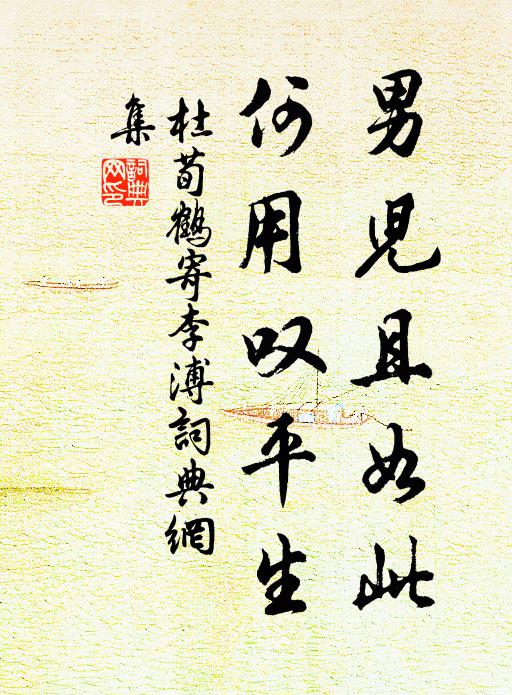 男児且如此
何用叹平生
杜荀鶴寄李溥詞典網
集
詞典
网印